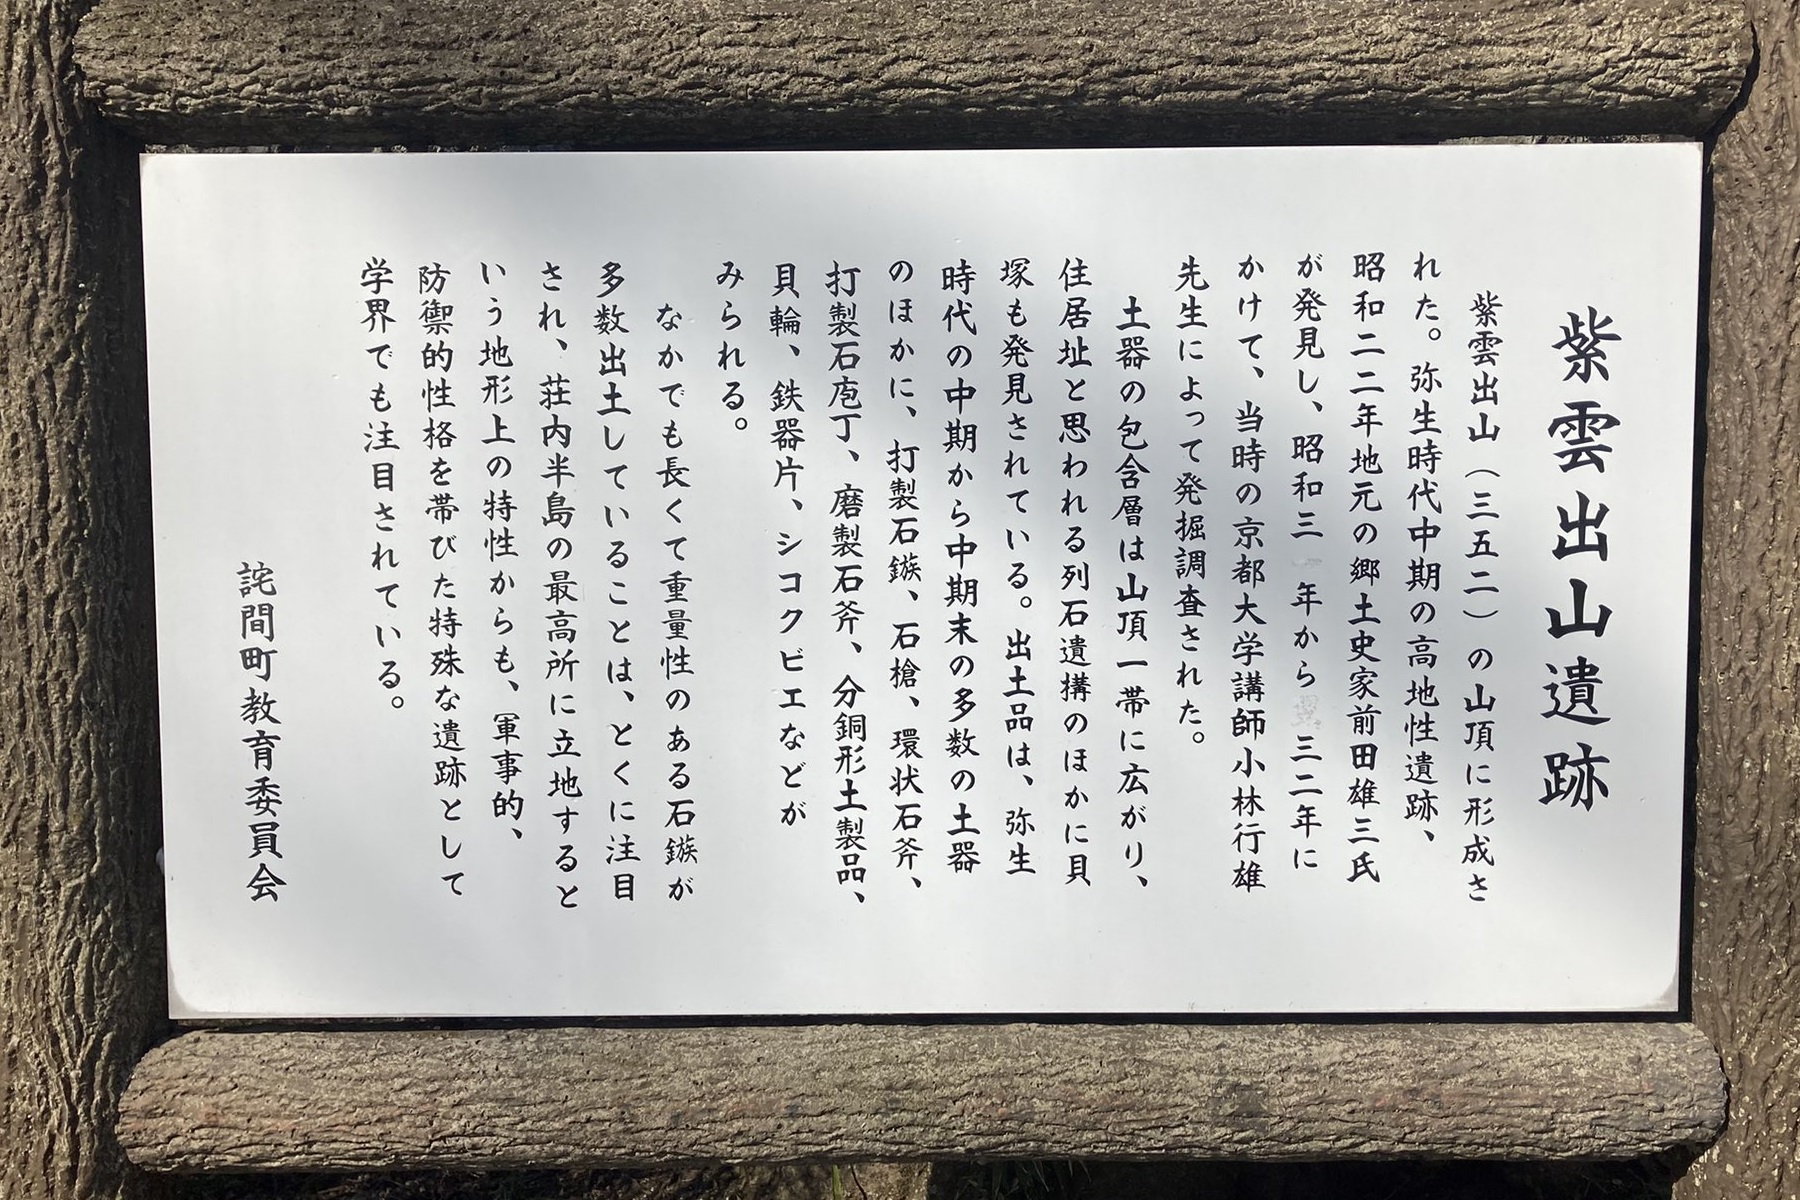 紫雲出山遺跡
紫雲出山(三五二)の山頂に形成さ
れた。弥生時代中期の高地性遺跡、
昭和二二年地元の郷土史家前田雄三氏
が発見し、昭和三 年から 三二年に
かけて、当時の京都大学講師小林行雄
先生によって発掘調査された。
土器の包含層は山頂一帯に広がり、
住居址と思われる列石遺構のほかに貝
塚も発見されている。出土品は、弥生
時代の中期から中期末の多数の土器
のほかに、打製石鏃、石槍、環状石斧、
打製石庖丁、磨製石斧、分銅形土製品、
貝輪、鉄器片、シコクビエなどが
みられる。
なかでも長くて重量性のある石鏃が
多数出土していることは、とくに注目
され、荘内半島の最高所に立地すると
いう地形上の特性からも、軍事的、
防禦的性格を帯びた特殊な遺跡として
学界でも注目されている。
詫間町教育委員会